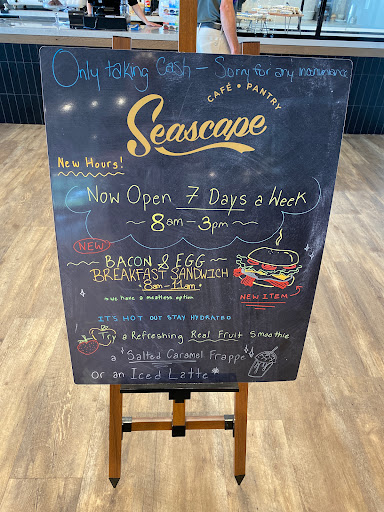 Only taking Cash - Sorry for any inconvenience
CAFÉ • PANTRY
Seascape
New Hours!
Now Open 7 Days a Week
~ 8am - 3pm ~
NEW
~ BACON & EGG ~
BREAKFAST SANDWICH
• 8am-11am •
* we have a meatless option
NEW ITEM
IT'S HOT OUT STAY HYDRATED
Try a Refreshing Real Fruit Smoothie
a Salted Caramel Frappe
or an Iced Latte *